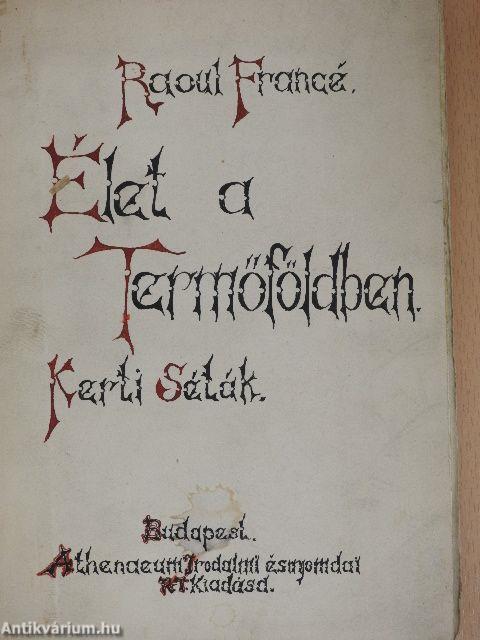 Raoul Francé.
Élet a
Termőföldben.
Kerti Séták.
Budapest.
Athenaeum Irodalmi és nyomdai
R.T. Kiadása.
Antikvárium.hu